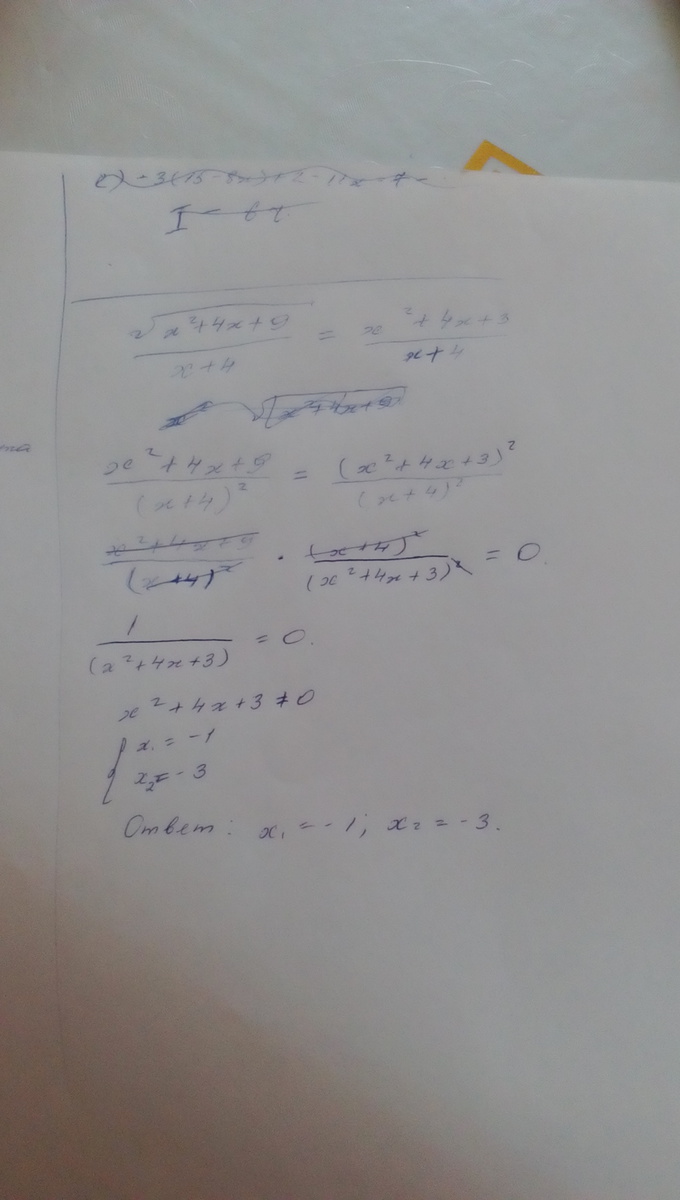 √(x²+4x+9) / (x+4) = (x²+4x+3) / (x+4)
(x²+4x+9) / (x+4)² = (x²+4x+3)² / (x+4)²
(x²+4x+9) / (x+4)² · (x+4)² / (x²+4x+3)² = 0.
1 / (x²+4x+3) = 0.
x²+4x+3 ≠ 0
{ x₁ = -1
x₂ = -3
Ответ: x₁ = -1; x₂ = -3.